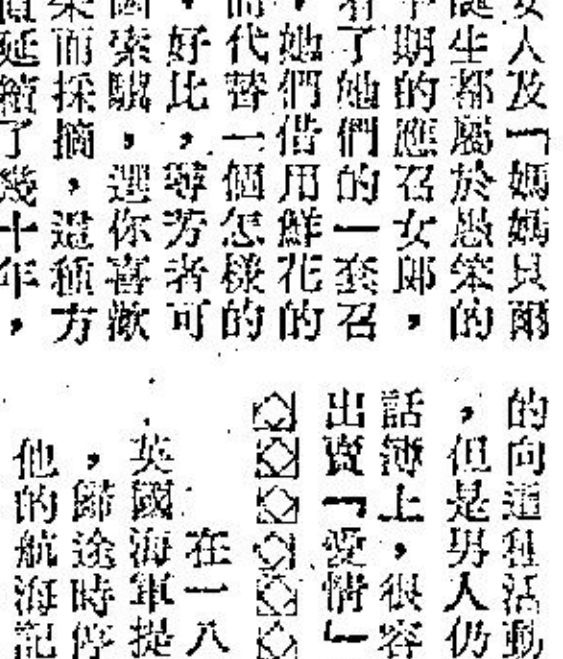 人及「媽媽只爾
生都屬於愚笨的
期的應召女郎，
了她們的一套召
她們借用鮮花的
代替一個怎樣的
好比，尋芳者可
索驥，選你喜歡
而採摘，這種方
延續了幾十年，
的向這種活動
，但是男人仍
話簿上，很容
出賣「愛情」
在一八
英國海軍提
，歸途時停
他的航海記